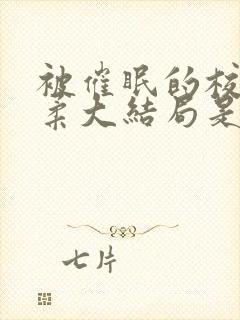 被催眠的校
柔大结局是
七片